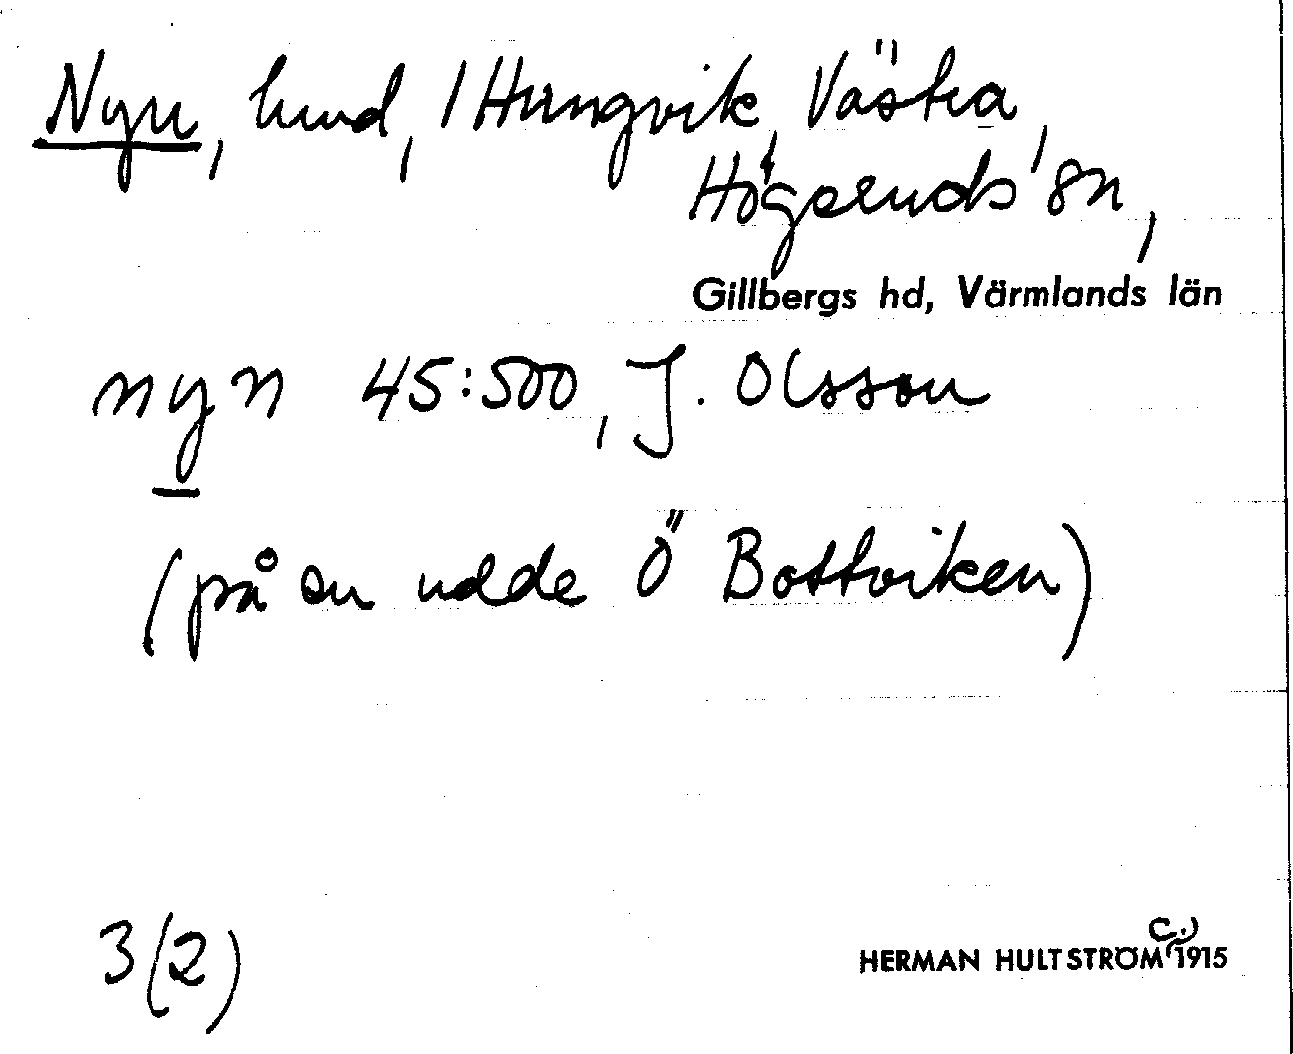 Nyn, hmd, 1 Hungvik, Västra,
Högsruds sn,
Gillbergs hd, Värmlands län
nyn 45:500, J. Olsson
(på en udde Ö Bottviken)
3(2)
HERMAN HULTSTRÖM (c.) 1915